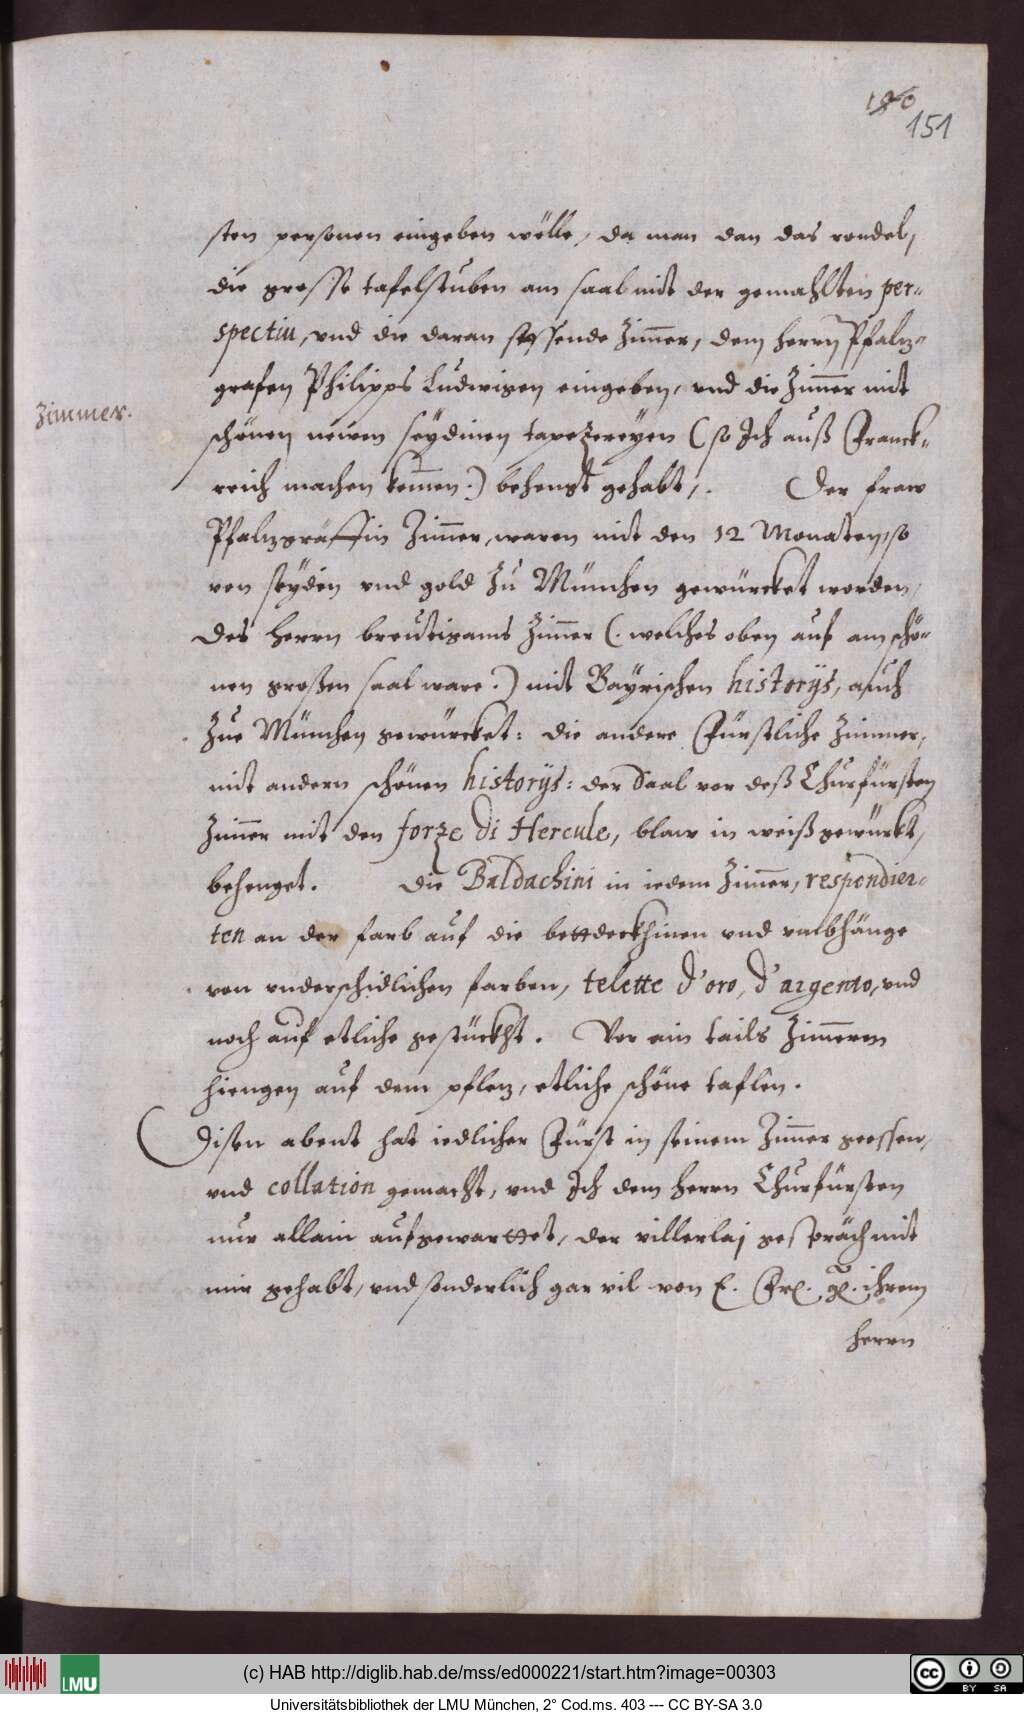 180
151
sten personen eingeben wölle, da man dan das rondel,
die grosse tafelstuben am saal mit der gemahlten per-
spectiu, vnd die daran stossende Zimer, dem herrn Pfalz-
grafen Philipps Ludwigen eingeben, vnd die Zimer mit
Zimmer.
schönen newen seydinen tapezereyen (so Ich auß Franck-
reich machen komen.) behengt gehabt,. Der fraw
Pfalzgräffin Zimer, waren mit den 12 Monaten, so
von seyden vnd gold Zu München gewürcket worden,
des herrn breutigams Zimer (. welches oben auf am schö-
nen großen saal ware.) mit Bayrischen historijs, auch
Zue München gewürcket: die andere Fürstliche Zimmer,
mit andern schönen historijs: der Saal vor deß Churfürsten
Zimer mit den forze di Hercule, blaw in weiß gewürkt,
behenget. die Baldachini in iedem Zimer, respondier-
ten an der farb auf die bettdeckhinen vnd vmbhänge
von vnderschidlichen farben, telette d'oro, d'argento, vnd
noch auf etliche gestückht. Vor ein tails Zimern
hiengen auf dem pflez, etliche schöne taflen.
Disen abent hat iedlicher Fürst in seinem Zimer geessen,
vnd collation gemacht, vnd Ich dem herrn Churfürsten
nur allain aufgewarttet, der villerlaj gespräch mit
mir gehabt, vnd sonderlich gar vil von E. Frl. gl. ihrem
herrn
(c) HAB http://diglib.hab.de/mss/ed000221/start.htm?image=00303
LMU
CC BY SA
Universitätsbibliothek der LMU München, 2° Cod.ms. 403 --- CC BY-SA 3.0